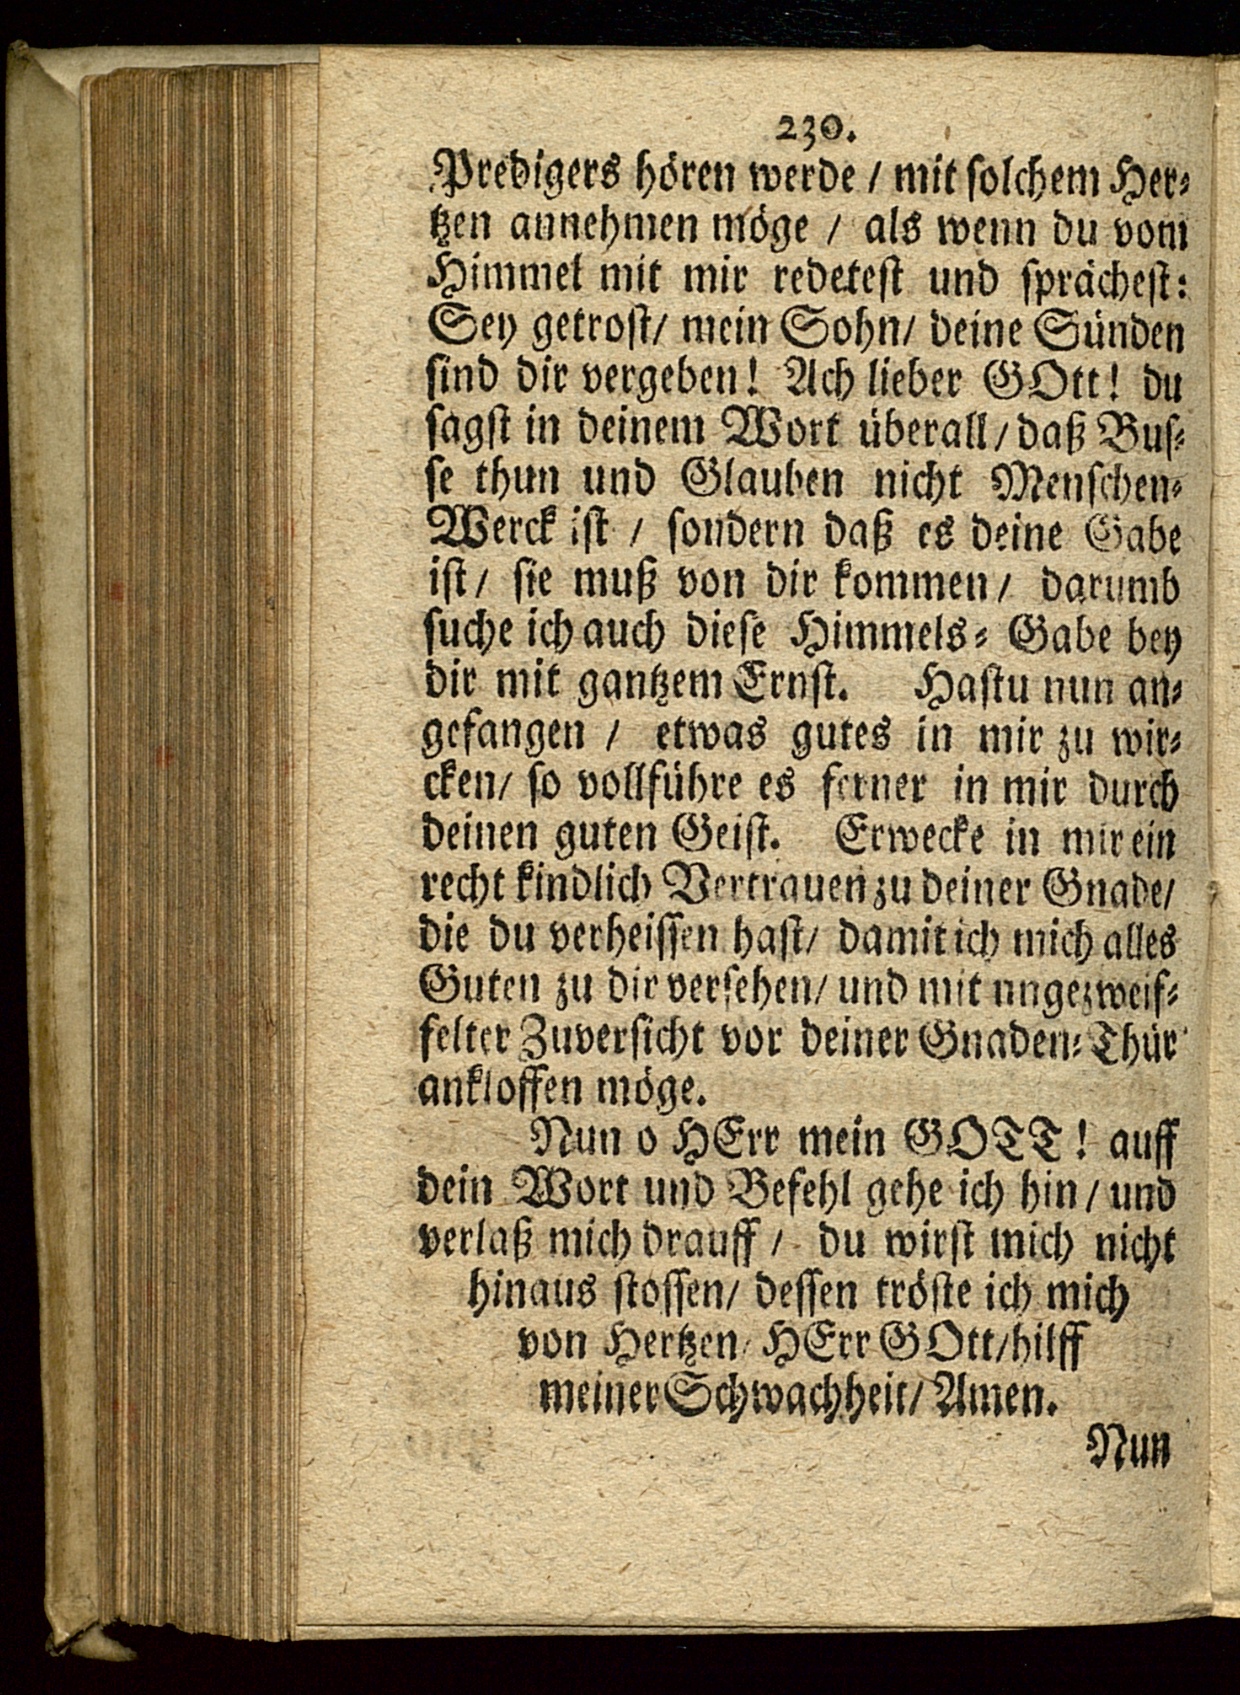 230.
Predigers hören werde / mit solchem Her-
tzen annehmen möge / als wenn du vom
Himmel mit mir redetest und sprächest:
Sey getrost/ mein Sohn/ deine Sünden
sind dir vergeben! Ach lieber GOtt! du
sagst in deinem Wort überall/ daß Bus-
se thun und Glauben nicht Menschen-
Werck ist / sondern daß es deine Gabe
ist/ sie muß von dir kommen/ darumb
suche ich auch diese Himmels- Gabe bey
dir mit gantzem Ernst. Hastu nun an-
gefangen / etwas gutes in mir zu wir-
cken/ so vollführe es ferner in mir durch
deinen guten Geist. Erwecke in mir ein
recht kindlich Vertrauen zu deiner Gnade/
die du verheissen hast/ damit ich mich alles
Guten zu dir versehen/ und mit ungezweif-
felter Zuversicht vor deiner Gnaden-Thür
ankloffen möge.
Nun o HErr mein GOTT! auff
dein Wort und Befehl gehe ich hin/ und
verlaß mich drauff / du wirst mich nicht
hinaus stossen/ dessen tröste ich mich
von Hertzen/ HErr GOtt/hilff
meiner Schwachheit/ Amen.
Nun